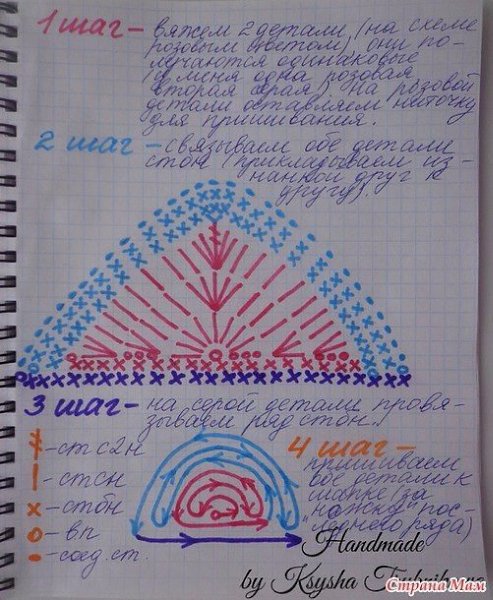 1 шаг - вяжем 2 детали (на схеме
розовым цветом), они по-
лучаются одинаковые
(у меня одна розовая
вторая серая) на розовой
детали оставляем ниточку
для пришивания.
2 шаг - связываем обе детали
стбн (прикладываем из-
нанкой друг к
другу).
3 шаг - на серой детали провя-
зываем ряд стбн.
- ст с2н
- стсн
- стбн
- вп
- соед.ст.
4 шаг -
пришиваем
обе детали к
шапке (за
"ножку" пос-
леднего ряда)
Handmade
by Ksysha
Страна Мам